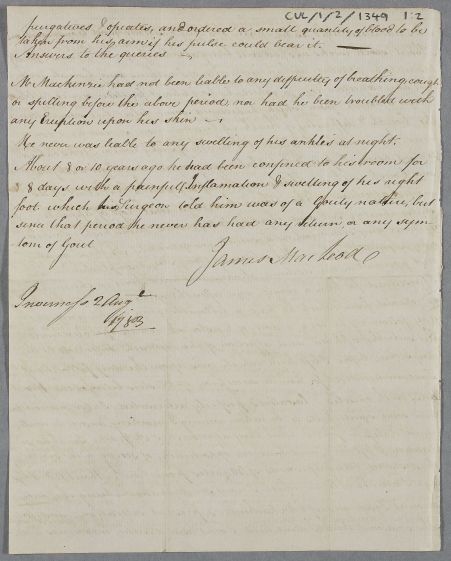 CUL/1/2/1349 1:2
purgatives & opeates, and ordered a small quantity of blood to be
taken from his arm if his pulse could bear it. —
Answers to the queries —
Mr Mackenzie had not been liable to any difficulty of breathing, cough
or spitting before the above period, nor had he been troubled with
any Eruption upon his skin —
He never was liable to any swelling of his ankles at night.
About 8 or 10 years ago he had been confined to his room for
8 days with a painfull Inflamation & swelling of his right
foot which his Surgeon told him was of a Gouty nature, but
since that period he never has had any return or any symp
tom of Gout
James MacLeod
Inverness 2 Augt
1783